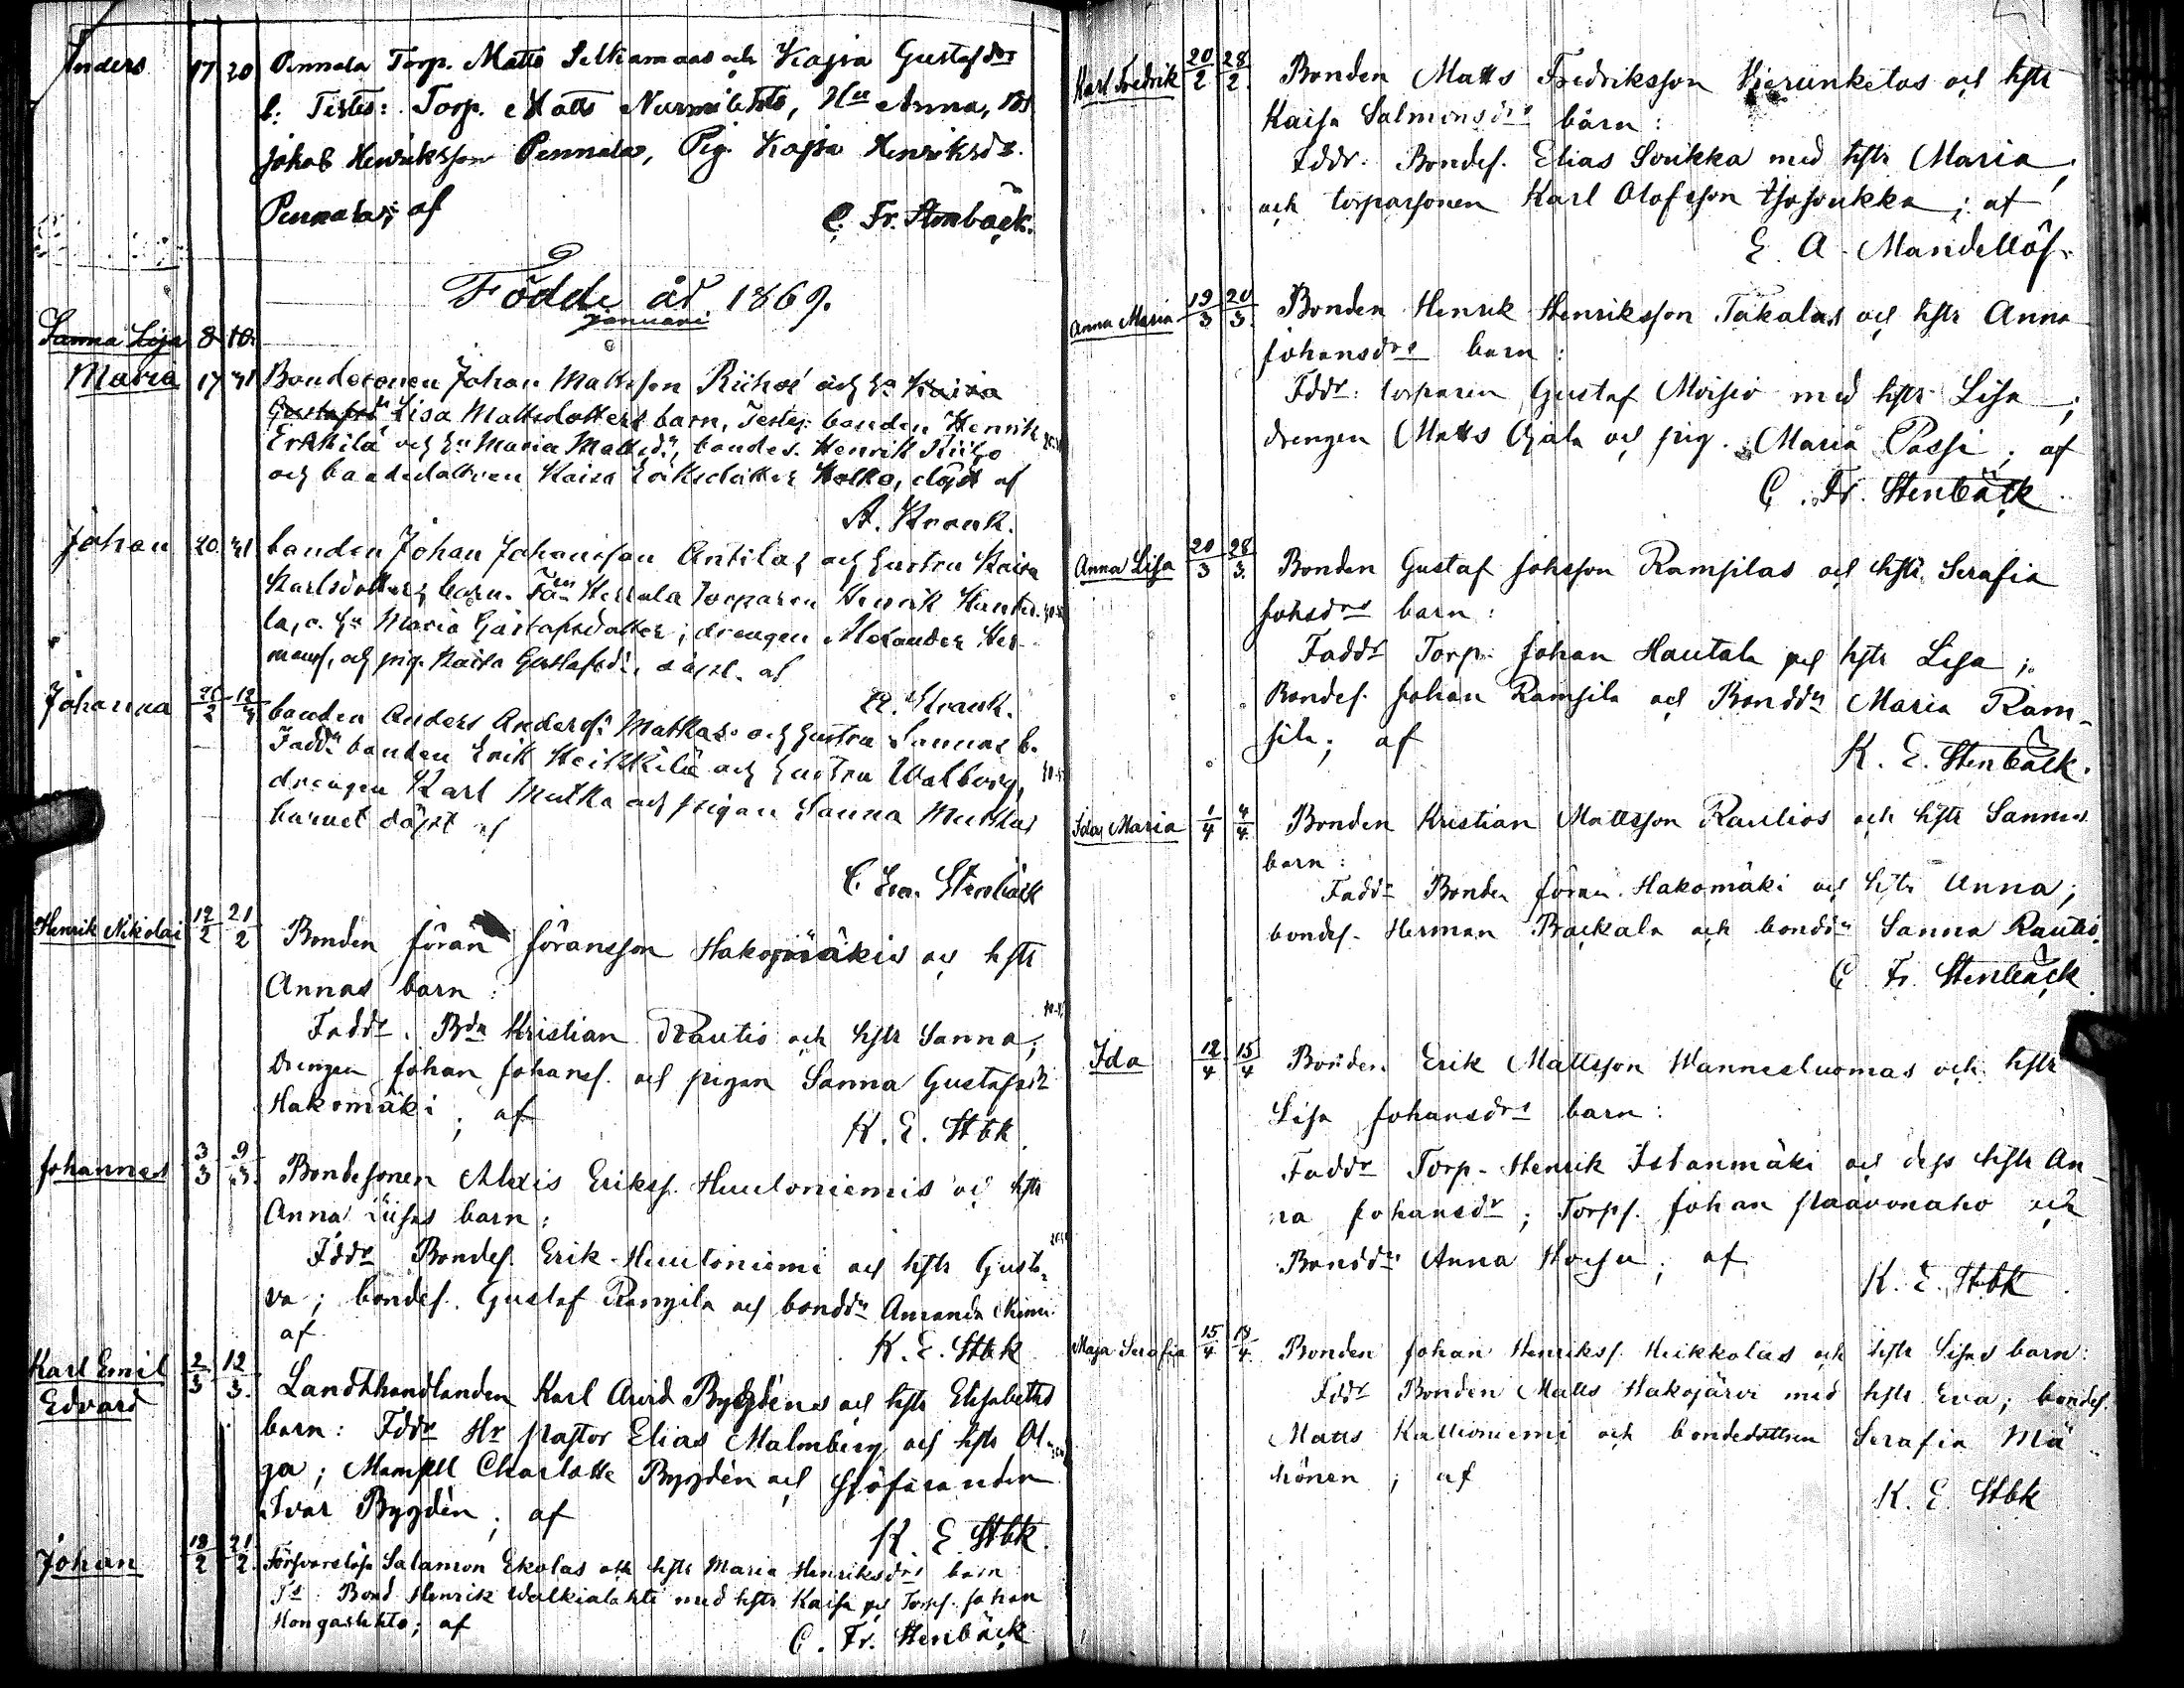 Anders 17 20 Pennala Torp. Matts och Kajsa Gustafsdrs
b: Testes: Torp. Matts, Hu Anna,
Jakob Henriksson Pennala, Pig. Kajsa Henriksdr.
Pennala; af C. Fr. Stenbäck.
Födde år 1869.
januari
Sanna Lisa 8 10
Maria 17 21 Bondesonen Johan Mattsson och Hu Kaisa
Gustafsdr Lisa Mattsdotters barn, Testes: bonden Henrik
Erkkilä och Hu Maria Mattsdr, bondes. Henrik
och bondedottren Kaisa Eriksdotter, döpt af
A. Kranck.
Johan 20 21 bonden Johan Johansson Antilas och hustru Kaisa
Karlsdotters barn. Torparen Henrik
la, o. Hu Maria Gustafsdotter; drengen Alexander Her-
mans, och pig. Kaisa Gustafsdr. döpt af
A. Kranck.
Johanna bonden Anders Anderss: Matkas och hustru Sannas b.
Faddr bonden Erik Heikkilä och hustru Walborg,
drengen Karl Mutka och pigan Sanna
barnet döpt af
Stenbäck
Henrik Nikolai 12/2 21/2 Bonden Jöran Jöransson Hakomäkis och hstr
Annas barn:
Faddr. Bdn Kristian Rautio och hstr Sanna;
Drengen Johan Johanss. och pigan Sanna Gustafsdr
Hakomäki; af
K. E. Stbk.
Johannes 3/3 9/3. Bondesonen Alexis Erikss. Huutoniemis och hstr
Anna Liisas barn:
Fddr Bondes. Erik Huutoniemi och hstr Gusta-
va; bondes. Gustaf Ramsila och bonddn Amanda
af K. E. Stbk
Karl Emil
Edvard 2/3 12/3. Landthandlanden Karl Arvid Bygdéns och hstr Elisabeths
barn: Fddr Hr Pastor Elias Malmberg och hstr Ol-
ga; Mamsell Charlotte Bygdén och sjöfaranden
Ivar Bygdén; af
K. E. Stbk.
Johan 18/2 21/2. Försvarslöse Salamon Ekolas och hstr Maria Henriksdrs barn
Ts: Bond Henrik Walkialahti med hstr Kaisa och Torps. Johan
af
C. Fr. Stenbäck
Karl Fredrik 20/2 28/2. Bonden Matts Fredriksson och hstr
Kaisa Salmonsdrs barn:
Fddr: Bondes. Elias Soukka med hstr Maria,
och torparsonen Karl Olofsson; af
E. A. Mandellöf.
Anna Maria 19/3 20/3. Bonden Henrik Henriksson Takalas och hstr Anna
Johansdrs barn:
Fddr: torparen Gustaf Moisio med hstr Lisa;
drengen Matts Ojala och pig. Maria Passi; af
C. Fr. Stenbäck.
Anna Lisa 20/3 28/3. Bonden Gustaf Johsson Ramsilas och hstr. Serafia
Johsdrs barn:
Faddr Torp. Johan Hautala och hstr Lisa;
Bondes. Johan Ramsila och Bonddn Maria Ram-
sila; af
K. E. Stenbäck.
Ida Maria 1/4 4/4 Bonden Kristian Mattsson Rautios och hstr Sannas
barn:
Faddr Bonden Jöran Hakomäki och hstr Anna;
bondes. Herman Backala och bonddn Sanna Rautio,
C Fr. Stenbäck
Ida 12/4 15/4 Bonden Erik Mattsson Wannesluomas och hstr
Lisa Johansdrs barn:
Faddr Torp. Henrik Istanmäki och dess hstr An-
na Johansdr; Torps. Johan Paavonaho och
Bonddn Anna; af
K. E. Stbk.
Maja Serafia 15/4 18/4. Bonden Johan Henrikss. Heikkolas och hstr Lisas barn:
Fddr Bonden Matts Hakojärvi med hstr Eva; bondes.
Matts Kallioniemi och bondedottren Serafia Mä-
könen; af
K. E. Stbk